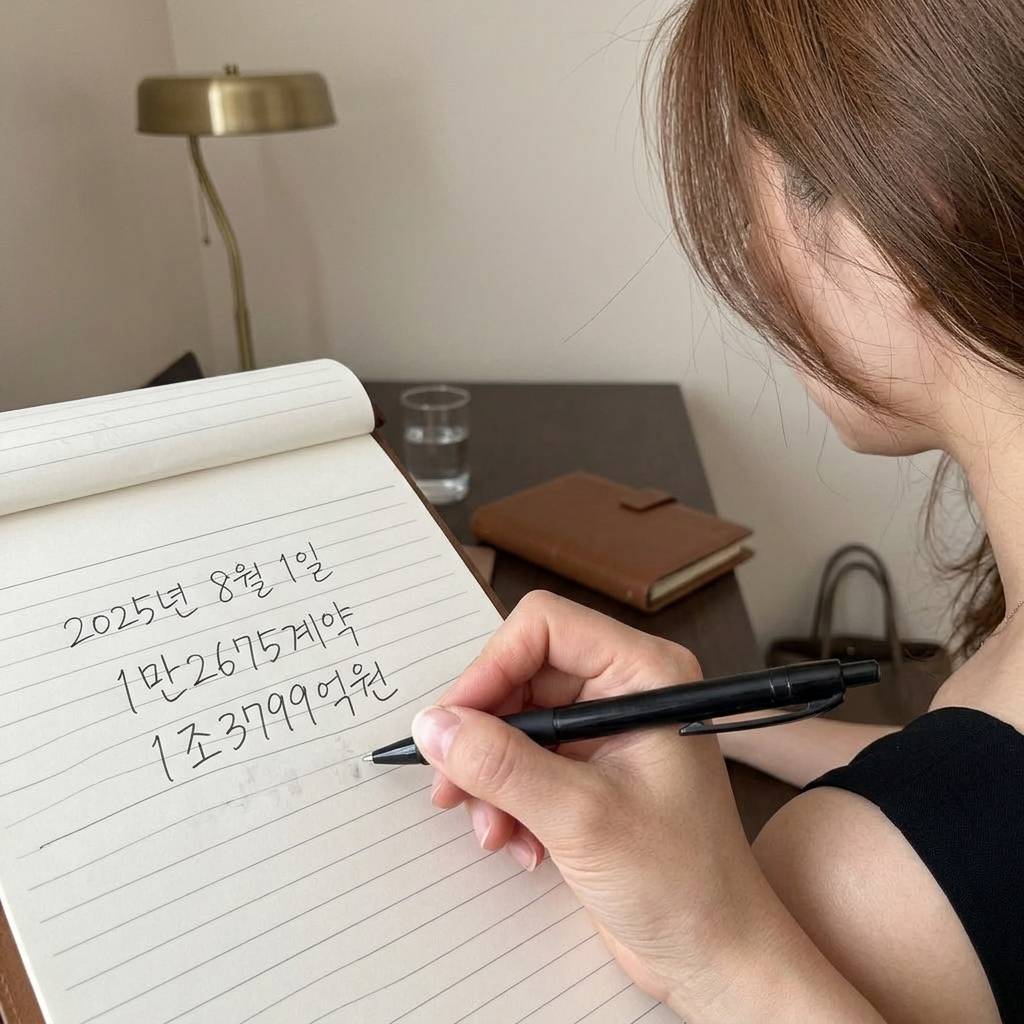 2025년 8월 1일
1만2675계약
1조3799억원